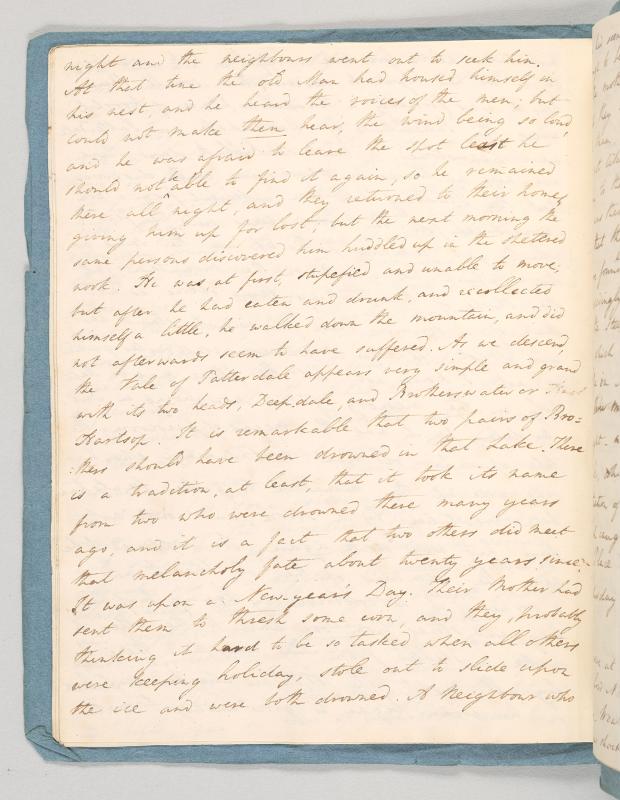 night and the neighbours went out to seek him.
At that time the old Man had housed himself in
his nest, and he heard the voices of the men; but
could not make them hear, the wind being so loud,
and he was afraid to leave the spot least he
should not be able to find it again, so he remained
there all night, and they returned to their homes
giving him up for lost; but the next morning the
same persons discovered him huddled up in the sheltered
nook. He was, at first, stupefied and unable to move;
but after he had eaten and drunk, and recollected
himself a little, he walked down the mountain, and did
not afterwards seem to have suffered. As we descend,
the Vale of Patterdale appears very simple and grand
with its two heads, Deepdale, and Brotherswater or
Hartsop. It is remarkable that two pairs of Bro=
:thers should have been drowned in that Lake. There
is a tradition, at least, that it took its name
from two who were drowned there many years
ago, and it is a fact that two others did meet
that melancholy fate about twenty years since.
It was upon a New-year's Day. Their Mother had
sent them to thresh some corn, and they, probably
thinking it hard to be so tasked when all others
were keeping holiday, stole out to slide upon
the ice and were both drowned. A Neighbour who